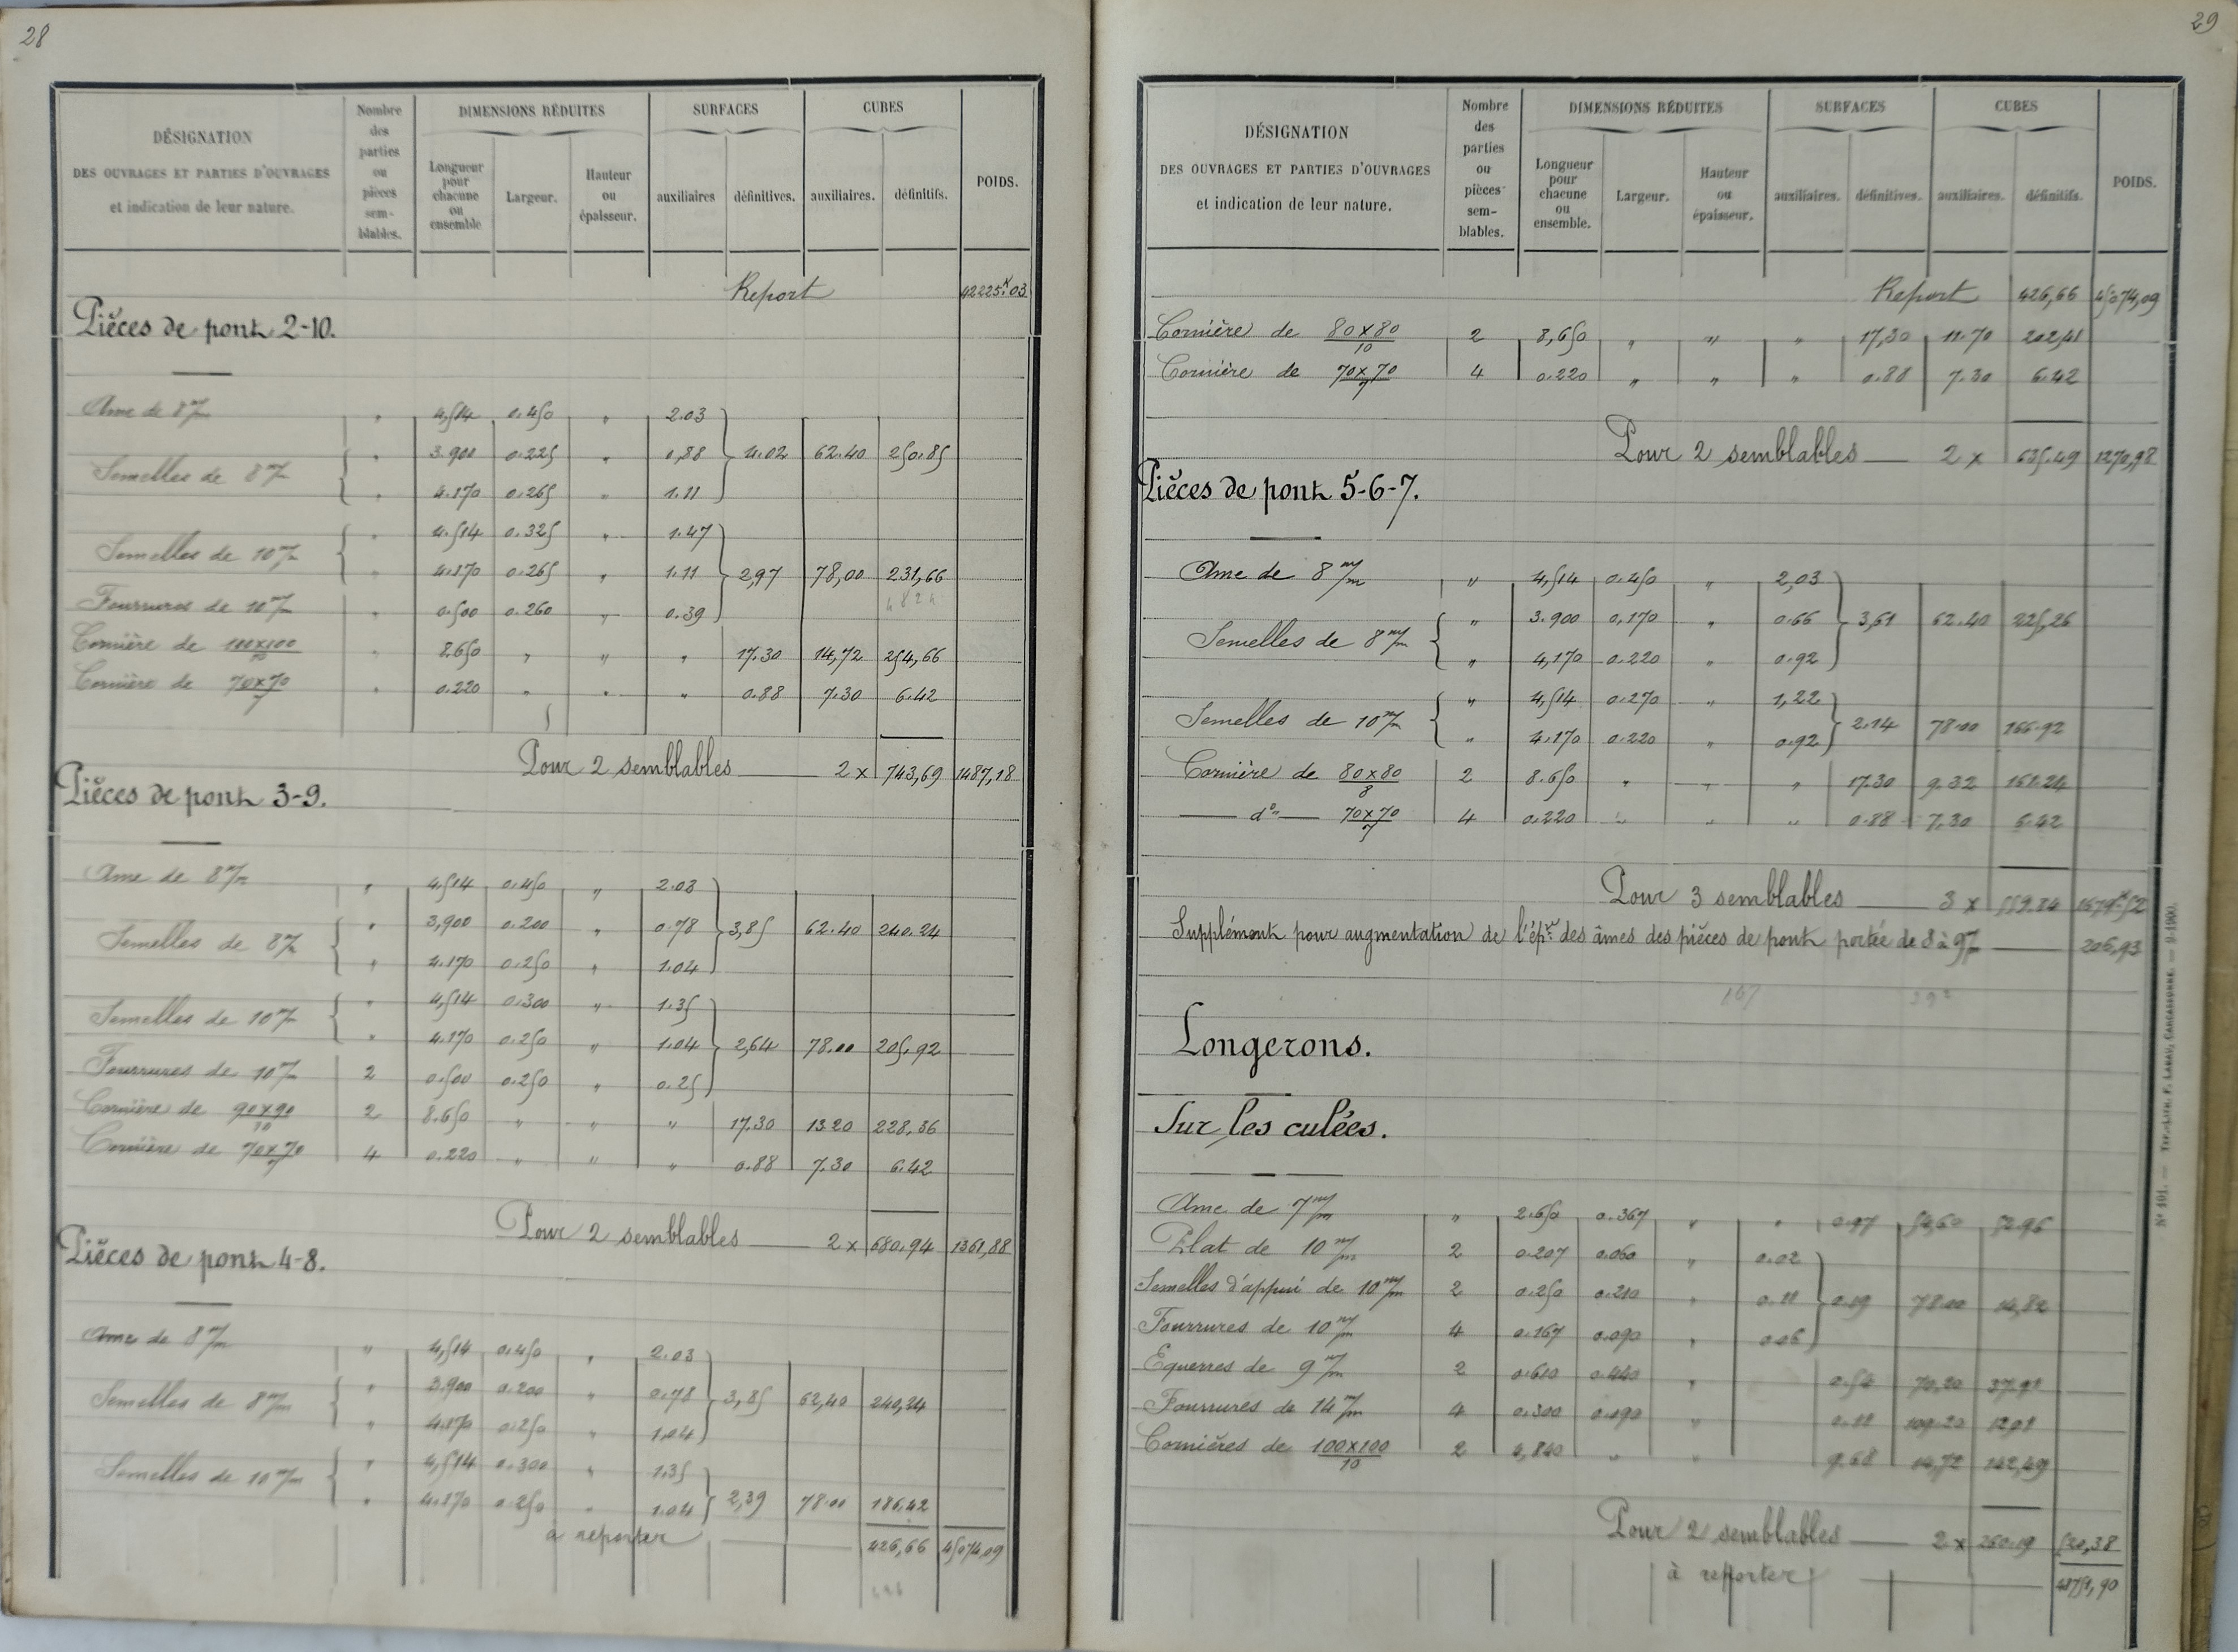 28
DÉSIGNATION
DES OUVRAGES ET PARTIES D'OUVRAGES
et indication de leur nature.
Nombre
des
parties
ou
pièces
sem-
blables.
DIMENSIONS RÉDUITES
Longueur
pour
chacune
ou
ensemble
Largeur.
Hauteur
ou
épaisseur.
SURFACES
auxiliaires
définitives.
CUBES
auxiliaires.
définitifs.
POIDS.
Report 42225K03
Pièces de pont 2-10.
Ame de 8m/m " 4,514 0.450 " 2.03
Semelles de 8m/m { " 3.900 0.225 " 0,88 } 4.02 62.40 250.85
" 4.170 0.265 " 1.11
Semelles de 10m/m { " 4.514 0.325 " 1.47
" 4.170 0.265 " 1.11 } 2,97 78,00 231,66
Fourrures de 10m/m " 0.500 0.260 " 0.39
Cornière de 100x100/10 " 8.650 " " " 17.30 14,72 254,66
Cornière de 70x70/7 " 0.220 " " " 0.88 7.30 6.42
Pour 2 semblables 2 x 743,69 1487,18
Pièces de pont 3-9.
Ame de 8m/m " 4,514 0.450 " 2.03
Semelles de 8m/m { " 3,900 0.200 " 0.78 } 3,85 62.40 240.24
" 4.170 0.250 " 1.04
Semelles de 10m/m { " 4,514 0.300 " 1.35
" 4.170 0.250 " 1.04 } 2,64 78.00 205.92
Fourrures de 10m/m 2 0.500 0.250 " 0.25
Cornière de 90x90/10 2 8.650 " " " 17.30 13 20 228,36
Cornière de 70x70/7 4 0.220 " " " 0.88 7.30 6.42
Pour 2 semblables 2 x 680.94 1361,88
Pièces de pont 4-8.
Ame de 8m/m " 4,514 0.450 " 2.03
Semelles de 8m/m { " 3.900 0.200 " 0.78 } 3,85 62,40 240,24
" 4.170 0.250 " 1.04
Semelles de 10m/m { " 4,514 0.300 " 1.35
" 4.170 0.250 " 1.04 } 2,39 78.00 186.42
à reporter 426,66 45074,09
29
DÉSIGNATION
DES OUVRAGES ET PARTIES D'OUVRAGES
et indication de leur nature.
Nombre
des
parties
ou
pièces
sem-
blables.
DIMENSIONS RÉDUITES
Longueur
pour
chacune
ou
ensemble.
Largeur.
Hauteur
ou
épaisseur.
SURFACES
auxiliaires.
définitives.
CUBES
auxiliaires.
définitifs.
POIDS.
Report 426,66 45074,09
Cornière de 80x80/10 2 8,650 " " " 17,30 11.70 202,41
Cornière de 70x70/7 4 0.220 " " " 0.88 7.30 6.42
Pour 2 semblables 2 x 635.49 1270,98
Pièces de pont 5-6-7.
Ame de 8m/m " 4,514 0.450 " 2,03
Semelles de 8m/m { " 3.900 0,170 " 0.66 } 3,61 62.40 225,26
" 4,170 0.220 " 0.92
Semelles de 10m/m { " 4,514 0.270 " 1,22 } 2.14 78.00 166.92
" 4.170 0.220 " 0.92
Cornière de 80x80/8 2 8.650 " " " 17.30 9.32 161.24
d° 70x70/7 4 0.220 " " " 0.88 7.30 6.42
Pour 3 semblables 3 x 559.84 1679K52
Supplément pour augmentation de l'épr des âmes des pièces de pont portée de 8 à 9m/m 206,93
Longerons.
Sur les culées.
Ame de 7m/m " 2.650 0.367 " " 0.97 54,60 52.96
Plat de 10m/m 2 0.207 0.060 " 0.02
Semelles d'appui de 10m/m 2 0.250 0.210 " 0.11 } 0.19 78.00 14,82
Fourrures de 10m/m 4 0.167 0.090 " 0.06
Equerres de 9m/m 2 0.610 0.440 " 0.54 70,20 37.91
Fourrures de 14m/m 4 0.300 0.090 " 0.11 109.20 12.01
Cornières de 100x100/10 2 4,840 " " 9.68 14,72 142,49
Pour 2 semblables 2 x 260.19 520,38
à reporter 48751,90
N° 101. — TYP.-LITH. F. LABAU, CARCASSONNE. — 9-1900.